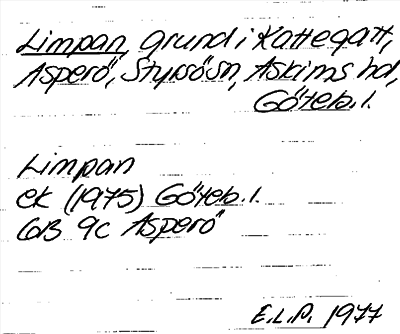 Limpan, grund i Kattegatt,
Asperö, Styrsö sn, Askims hd,
Göteb. l.
Limpan
ek (1975) Göteb. l.
6B 9c Asperö
E.L.P. 1977